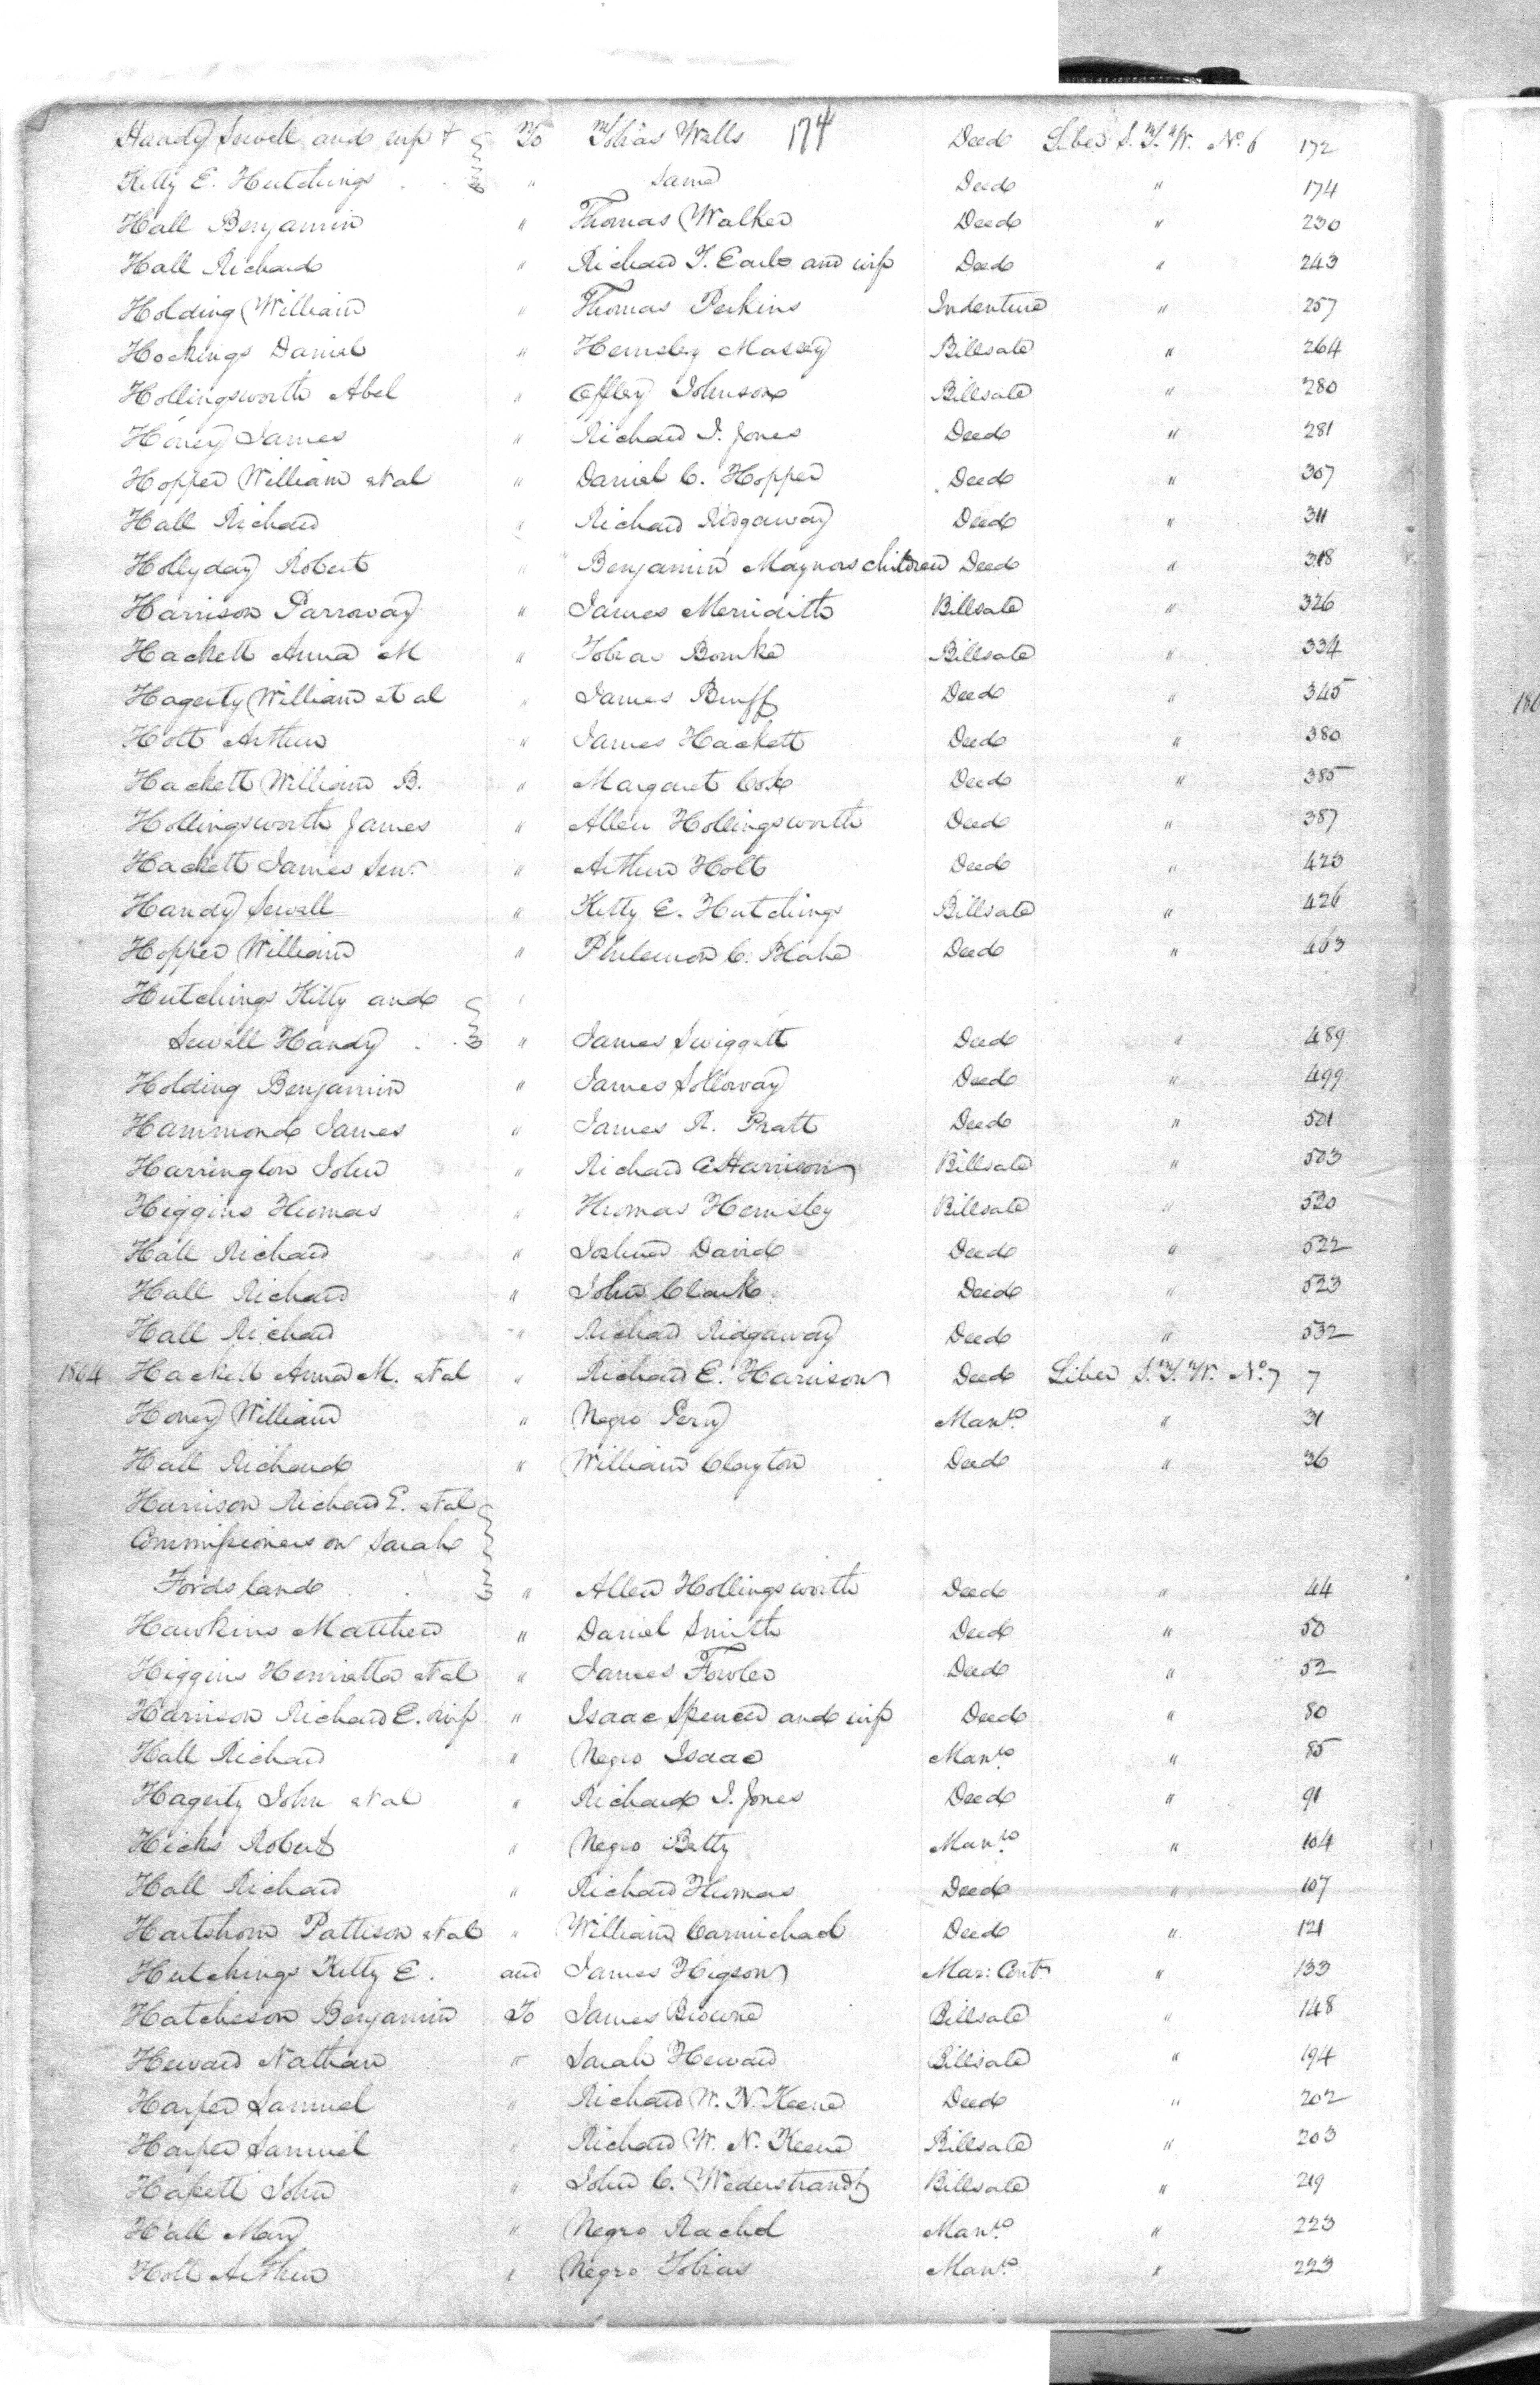 174
Handy Sewell and wife & To Tobias Walls Deed Liber S.T.W. No. 6 172
Kitty E. Hutchings " Same Deed " 174
Hall Benjamin " Thomas Walker Deed " 230
Hall Richard " Richard T. Earle and wife Deed " 243
Holding William " Thomas Perkins Indenture " 257
Hockings Daniel " Hemsley Massey Billsale " 264
Hollingsworth Abel " Offley Johnson Billsale " 280
Honey James " Richard I. Jones Deed " 281
Hopper William et al " Daniel C. Hopper Deed " 307
Hall Richard " Richard Ridgaway Deed " 311
Hollyday Robert " Benjamin Maynors children Deed " 318
Harrison Parroway " James Merridith Billsale " 326
Hackett Anna M " Tobias Bourke Billsale " 334
Hagerty William et al " James Bruff Deed " 345
Holt Arthur " James Hackett Deed " 380
Hackett William B. " Margaret Cox Deed " 385
Hollingsworth James " Allen Hollingsworth Deed " 387
Hackett James Senr. " Arthur Holt Deed " 423
Handy Sewell " Kitty E. Hutchings Billsale " 426
Hopper William " Philemon C. Blake Deed " 463
Hutchings Kitty and
Sewell Handy " James Swiggett Deed " 489
Holding Benjamin " James Solloway Deed " 499
Hammond James " James R. Pratt Deed " 501
Harrington John " Richard E Harrison Billsale " 503
Higgins Thomas " Thomas Hemsley Billsale " 520
Hall Richard " Joshua David Deed " 522
Hall Richard " John Clark Deed " 523
Hall Richard " Richard Ridgaway Deed " 532
1804 Hackett Anna M. et al " Richard E. Harrison Deed Liber S.T.W. No. 7 7
Honey William " Negro Perry Manto. " 31
Hall Richard " William Clayton Deed " 36
Harrison Richard E. et al
Commissioners on Sarah
Fords land " Allen Hollingsworth Deed " 44
Hawkins Matthew " Daniel Smith Deed " 50
Higgins Henrietta et al " James Fowler Deed " 52
Harrison Richard E. & wife " Isaac Spencer and wife Deed " 80
Hall Richard " Negro Isaac Manto. " 85
Hagerty John et al " Richard I. Jones Deed " 91
Hicks Robert " Negro Betty Manto. " 104
Hall Richard " Richard Thomas Deed " 107
Hartshorn Pattison et al " William Carmichael Deed " 121
Hutchings Kitty E. and James Higson Mar: Cont " 133
Hatcheson Benjamin To James Browne Billsale " 148
Heward Nathan " Sarah Heward Billsale " 194
Harper Samuel " Richard W. N. Keene Deed " 202
Harper Samuel " Richard W. N. Keene Billsale " 203
Haslett John " John C. Wederstrandt Billsale " 219
Hall Mary " Negro Rachel Manto. " 223
Holt Arthur " Negro Tobias Manto. " 223